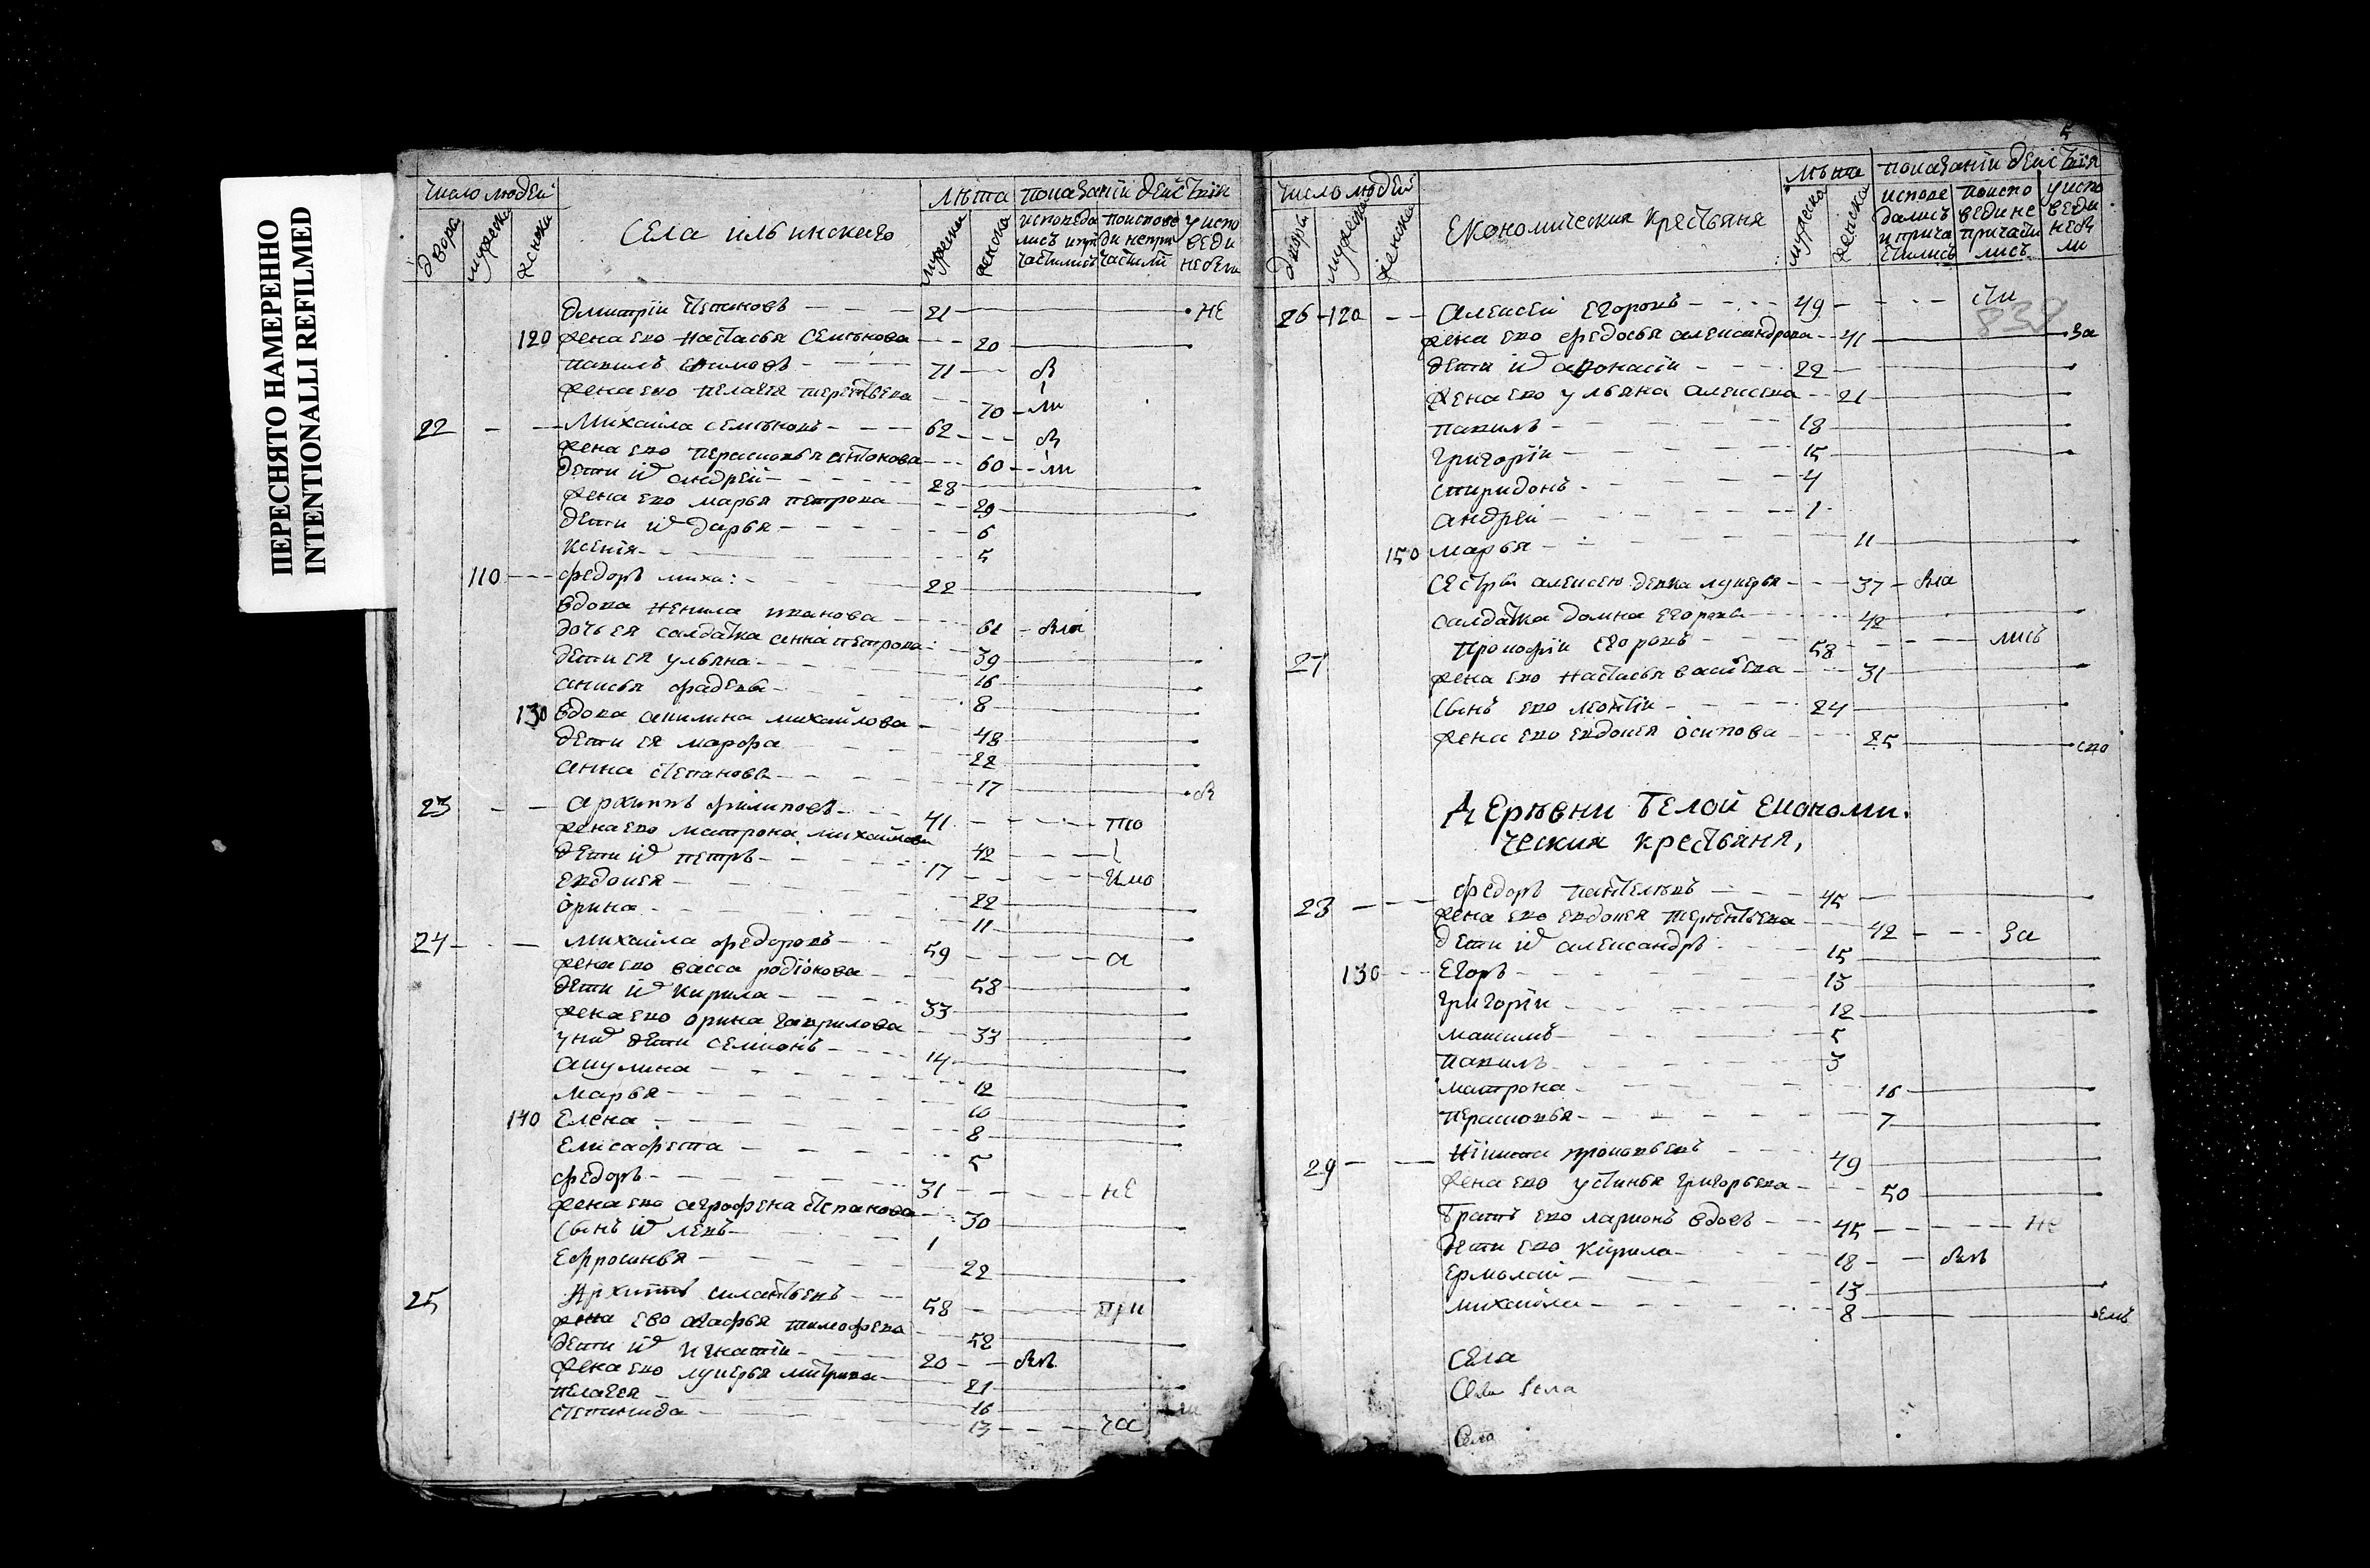 ПЕРЕСНЯТО НАМЕРЕННО
INTENTIONALLI REFILMED
число людей
двора
мужеска
женска
Села ильинскаго
Лѣта
мужеска
женска
показаніи действии
исповеда
лись и при
частились
поислове
ди непри
частили
у испо
веди
небыли
Дмитріи Степановъ 21 не
120 жена ево настасья семенова 20
павилъ 71 бы
жена ево пелагея терентьева 70 ли
22 Михаила семеновъ 62 бы
жена ево парасковья антонова 60 ли
дети их андрей 28
жена ево марья петрова 29
дети их дарья 6
ксения 5
110 федоръ миха: 22
вдова ненила иванова 61 была
дочь ея салдатка анна петрова 39
дети ея ульяна 16
анисья фадеева 8
130 вдова акилина михаилова 48
дети ея марфа 22
анна степанова 17 бы
23 архипъ филиповъ 41 то
жена ево матрона михаилова 42
дети их петръ 17
евдокея 22
орина 11
24 михаила федоровъ 59 а
жена ево васса родіонова 58
дети их кирила 33
жена ево орина гаврилова 33
у них дети семионъ 14
акулина 12
марья 10
140 елена 8
елисафета 5
федоръ 31 не
жена ево аграфена степанова 30
сынъ их левъ 1
ефросинья 22
25 Архипъ силантьевъ 58 при
жена ево агафья тимофева 52
дети их игнатіи 20 былъ
жена ево лукерья митрева 21
пелагея 16
степанида 13 ча
5
число людей
двора
мужеска
женска
Економическия крестьяня
Лѣта
мужеска
женска
показаніи действия
испове
дались
и прича
стились
поиспо
веди не
причасти
лись
у испо
веди
небы
ли
838
26 120 Алексей Егоровъ 49
жена ево федосья александрова 41 за
дети их афонасіи 22
жена ево ульяна алексева 21
павилъ 18
григоріи 15
спиридонъ 4
андреи 1
150 марья 11
сестры алексею девка лукерья 37 была
салдатка домна егорова 42
27 Прокофіи Егоровъ 58 лись
жена ево настасья васильева 31
сынъ ево леонтіи 24
жена ево евдокея осипова 25
Деревни Белой Економи.
ческия крестьяня,
23 федоръ пантелеевъ 45
жена ево евдокея терентьева 42 за
дети их александръ 15
130 егоръ 13
григоріи 12
максимъ 5
павилъ 3
матрона 16
парасковья 7
29 Никита прокофьевъ 49
жена ево устинья григорьева 50
братъ ево ларионъ вдовъ 45 не
дети ево кирила 18 былъ
ермолай 13
михаила 8
села
села
села